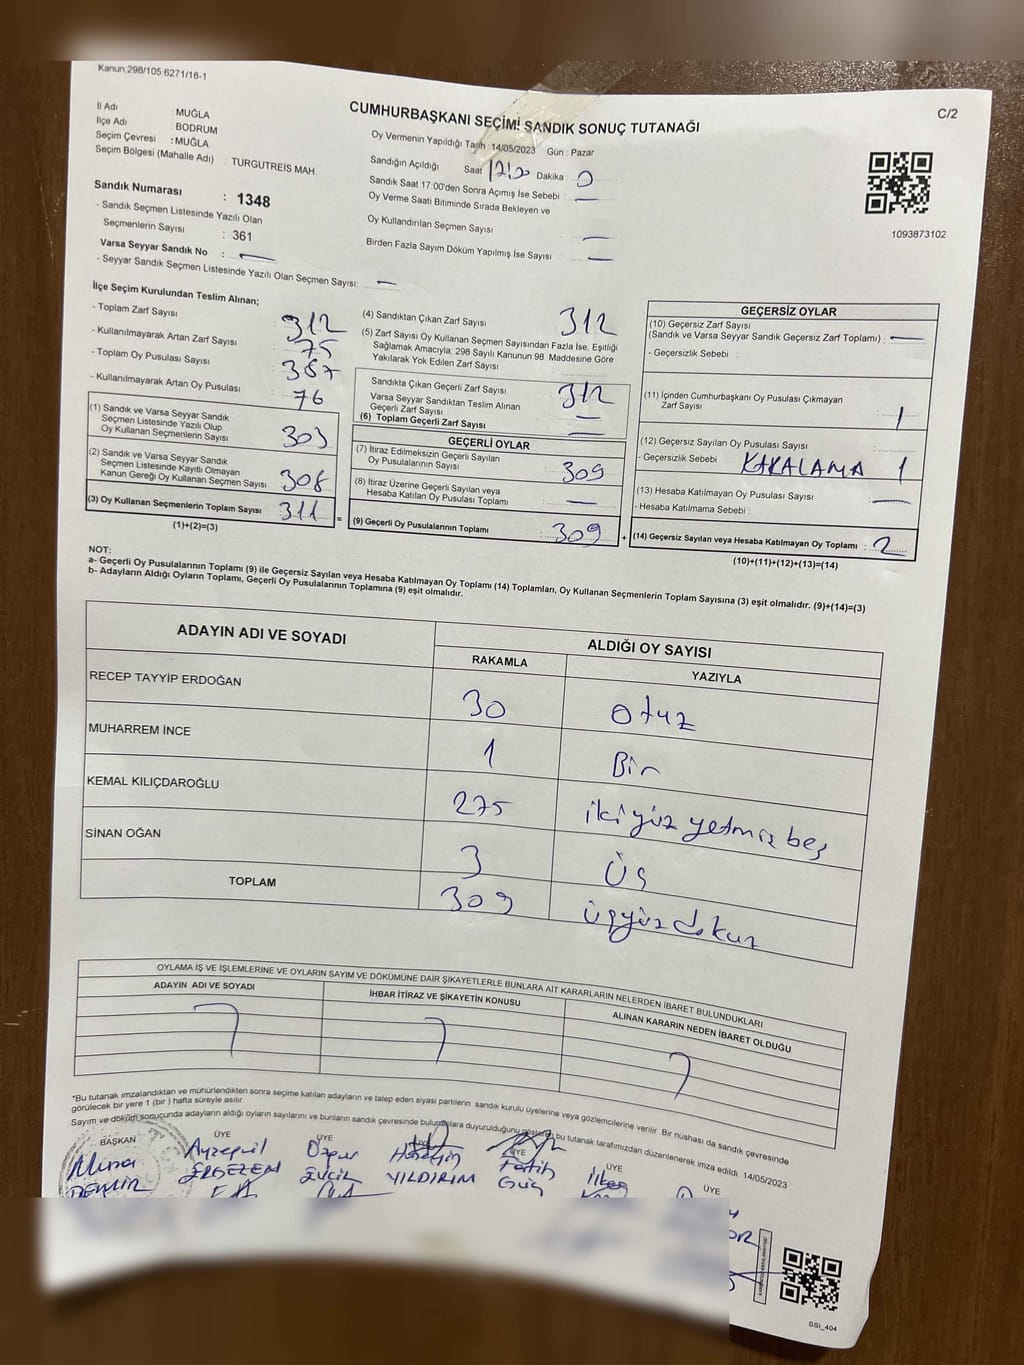 Kanun:298/105,6271/18-1
C/2
İl Adı : MUĞLA
İlçe Adı : BODRUM
Seçim Çevresi : MUĞLA
Seçim Bölgesi (Mahalle Adı) : TURGUTREİS MAH
Sandık Numarası : 1348
- Sandık Seçmen Listesinde Yazılı Olan
Seçmenlerin Sayısı : 361
Varsa Seyyar Sandık No : —
- Seyyar Sandık Seçmen Listesinde Yazılı Olan Seçmen Sayısı: —
CUMHURBAŞKANI SEÇİMİ SANDIK SONUÇ TUTANAĞI
Oy Vermenin Yapıldığı Tarih :14/05/2023 Gün : Pazar
Sandığın Açıldığı Saat Dakika :
Sandık Saat 17:00'den Sonra Açımış İse Sebebi : —
Oy Verme Saati Bitiminde Sırada Bekleyen ve
Oy Kullandırılan Seçmen Sayısı —
Birden Fazla Sayım Döküm Yapılmış İse Sayısı : —
1093873102
İlçe Seçim Kurulundan Teslim Alınan;
- Toplam Zarf Sayısı : 312
- Kullanılmayarak Artan Zarf Sayısı : 75
- Toplam Oy Pusulası Sayısı : 387
- Kullanılmayarak Artan Oy Pusulası : 76
(1) Sandık ve Varsa Seyyar Sandık
Seçmen Listesinde Yazılı Olup
Oy Kullanan Seçmenlerin Sayısı : 303
(2) Sandık ve Varsa Seyyar Sandık
Seçmen Listesinde Kayıtlı Olmayan
Kanun Gereği Oy Kullanan Seçmen Sayısı : 308
(3) Oy Kullanan Seçmenlerin Toplam Sayısı : 311
(1)+(2)=(3)
(4) Sandıktan Çıkan Zarf Sayısı : 312
(5) Zarf Sayısı Oy Kullanan Seçmen Sayısından Fazla İse, Eşitliği
Sağlamak Amacıyla; 298 Sayılı Kanunun 98. Maddesine Göre
Yakılarak Yok Edilen Zarf Sayısı :
Sandıkta Çıkan Geçerli Zarf Sayısı : 312
Varsa Seyyar Sandıktan Teslim Alınan
Geçerli Zarf Sayısı : —
(6) Toplam Geçerli Zarf Sayısı : —
GEÇERLİ OYLAR
(7) İtiraz Edilmeksizin Geçerli Sayılan
Oy Pusulalarının Sayısı : 309
(8) İtiraz Üzerine Geçerli Sayılan veya
Hesaba Katılan Oy Pusulası Toplamı : —
= (9) Geçerli Oy Pusulalarının Toplamı : 309
GEÇERSİZ OYLAR
(10) Geçersiz Zarf Sayısı
(Sandık ve Varsa Seyyar Sandık Geçersiz Zarf Toplamı) : —
- Geçersizlik Sebebi :
(11) İçinden Cumhurbaşkanı Oy Pusulası Çıkmayan
Zarf Sayısı : 1
(12) Geçersiz Sayılan Oy Pusulası Sayısı :
- Geçersizlik Sebebi : KARALAMA 1
(13) Hesaba Katılmayan Oy Pusulası Sayısı : —
- Hesaba Katılmama Sebebi :
+ (14) Geçersiz Sayılan veya Hesaba Katılmayan Oy Toplamı : 2
(10)+(11)+(12)+(13)=(14)
NOT:
a- Geçerli Oy Pusulalarının Toplamı (9) ile Geçersiz Sayılan veya Hesaba Katılmayan Oy Toplamı (14) Toplamları, Oy Kullanan Seçmenlerin Toplam Sayısına (3) eşit olmalıdır. (9)+(14)=(3)
b- Adayların Aldığı Oyların Toplamı, Geçerli Oy Pusulalarının Toplamına (9) eşit olmalıdır.
ADAYIN ADI VE SOYADI ALDIĞI OY SAYISI
RAKAMLA YAZIYLA
RECEP TAYYİP ERDOĞAN 30 otuz
MUHARREM İNCE 1 Bir
KEMAL KILIÇDAROĞLU 275 iki yüz yetmiş beş
SİNAN OĞAN 3 üç
TOPLAM 309 üçyüz dokuz
OYLAMA İŞ VE İŞLEMLERİNE VE OYLARIN SAYIM VE DÖKÜMÜNE DAİR ŞİKAYETLERLE BUNLARA AİT KARARLARIN NELERDEN İBARET BULUNDUKLARI
ADAYIN ADI VE SOYADI İHBAR İTİRAZ VE ŞİKAYETİN KONUSU ALINAN KARARIN NEDEN İBARET OLDUĞU
*Bu tutanak imzalandıktan ve mühürlendikten sonra seçime katılan adayların ve talep eden siyasi partilerin sandık kurulu üyelerine veya gözlemcilerine verilir. Bir nüshası da sandık çevresinde
görülecek bir yere 1 (bir) hafta süreyle asılır.
Sayım ve döküm sonucunda adayların aldığı oyların sayılarını ve bunların sandık çevresinde bulunanlara duyurulduğunu gösteren bu tutanak tarafımızdan düzenlenerek imza edildi. 14/05/2023
BAŞKAN ÜYE ÜYE ÜYE ÜYE ÜYE ÜYE
Özgür Hüseyin Fatih İlker
DEMİR ERGEZEN EVCİL YILDIRIM Güç
SSI_404